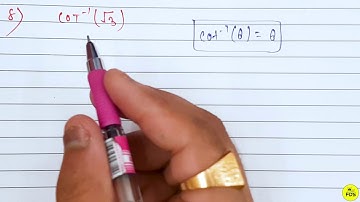 8) cot⁻¹(√3)
cot⁻¹(θ) = θ
FDS